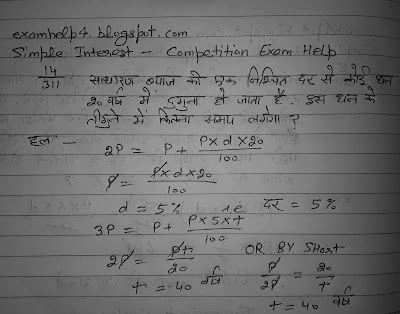 examhelp4.blogspot.com
Simple Interest - Competition Exam Help
14/311 साधारण ब्याज की एक निश्चित दर से कोई धन
20 वर्ष में दुगुना हो जाता है. इस धन के
तीगुने में कितना समय लगेगा ?
हल -
2P = P + P×d×20/100
P = P×d×20/100
d = 5% i.e दर = 5%
3P = P + P×5×t/100
2P = Pt/20 OR BY SHort
t = 40 वर्ष P/2P = 20/t
t = 40 वर्ष